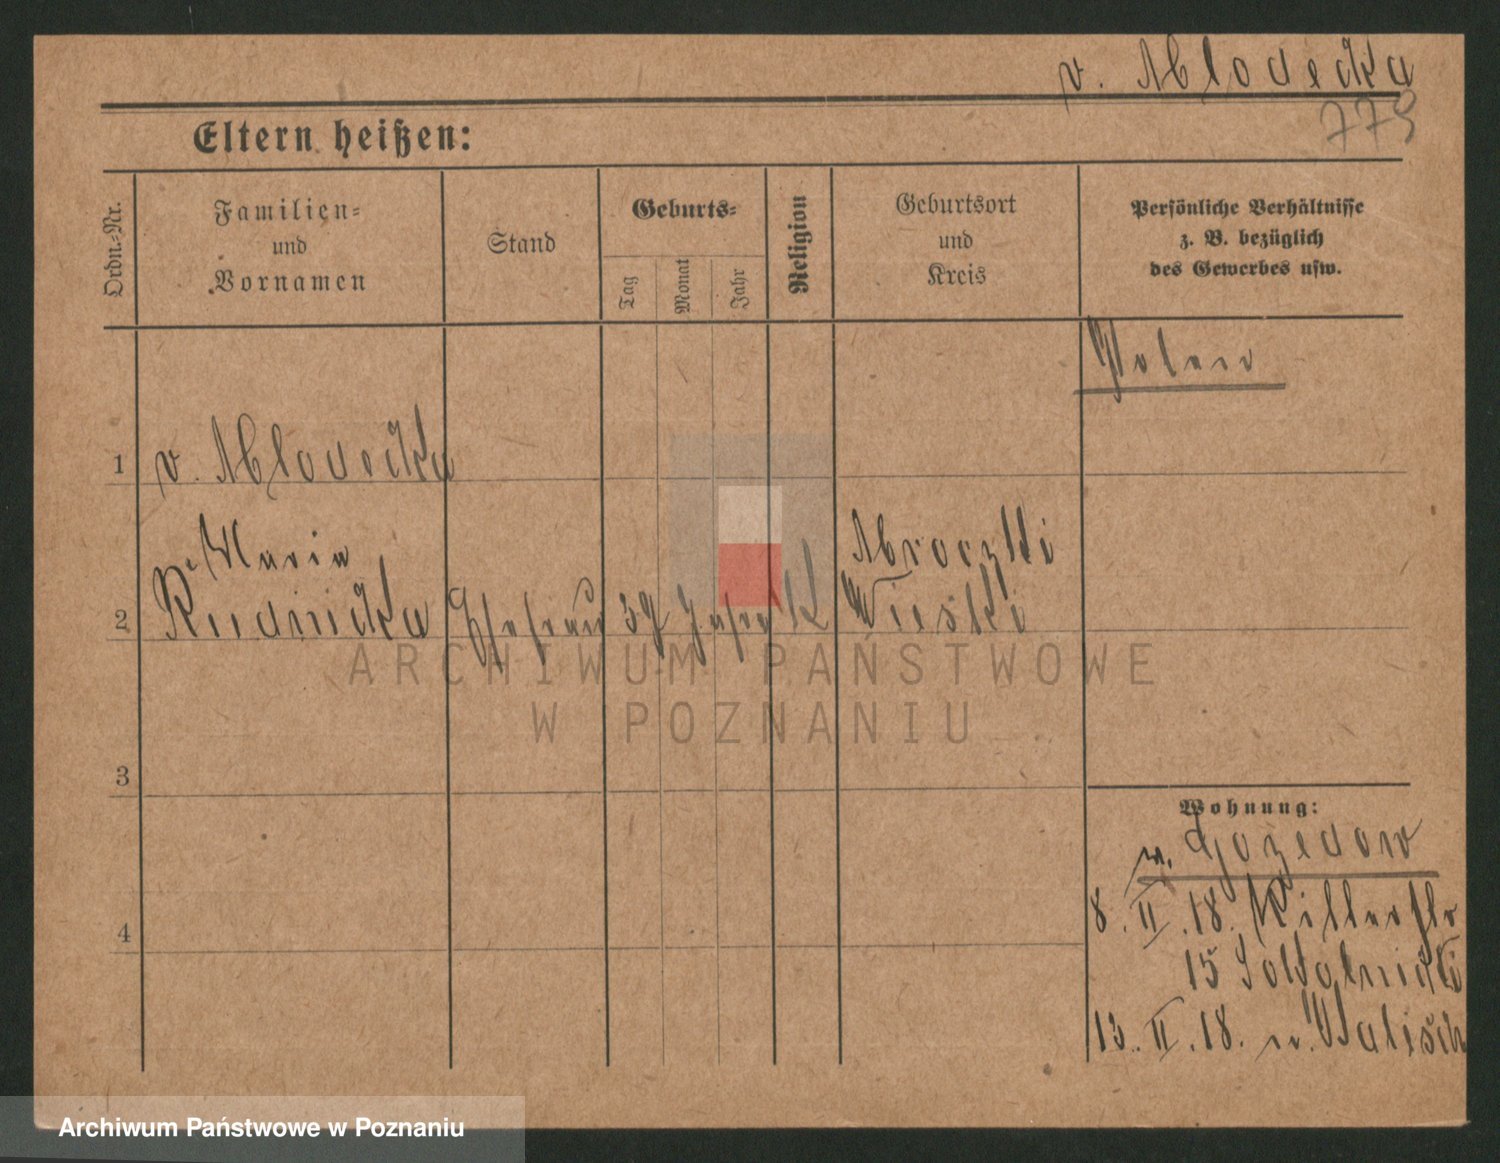 v. Mlodecka
779
Eltern heißen:
Ordn.-Nr.
Familien-
und
Vornamen
Stand
Geburts-
Tag
Monat
Jahr
Religion
Geburtsort
und
Kreis
Persönliche Verhältnisse
z. B. bezüglich
des Gewerbes usw.
Polen
1 v. Mlodecka
Maria
2 Rudnicka Ehefrau 39 Jahre K
Mroczki
Wielki
ARCHIWUM PAŃSTWOWE
W POZNANIU
3
Wohnung:
n. Gozdowo
8. II. 18. Ritterstr
15
4
13. II. 18. n. Walisch
Archiwum Państwowe w Poznaniu